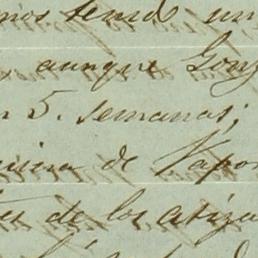 nos tend un
aunque Gonz
n 5. semanas;
uina de Vapor
tes de los atiza